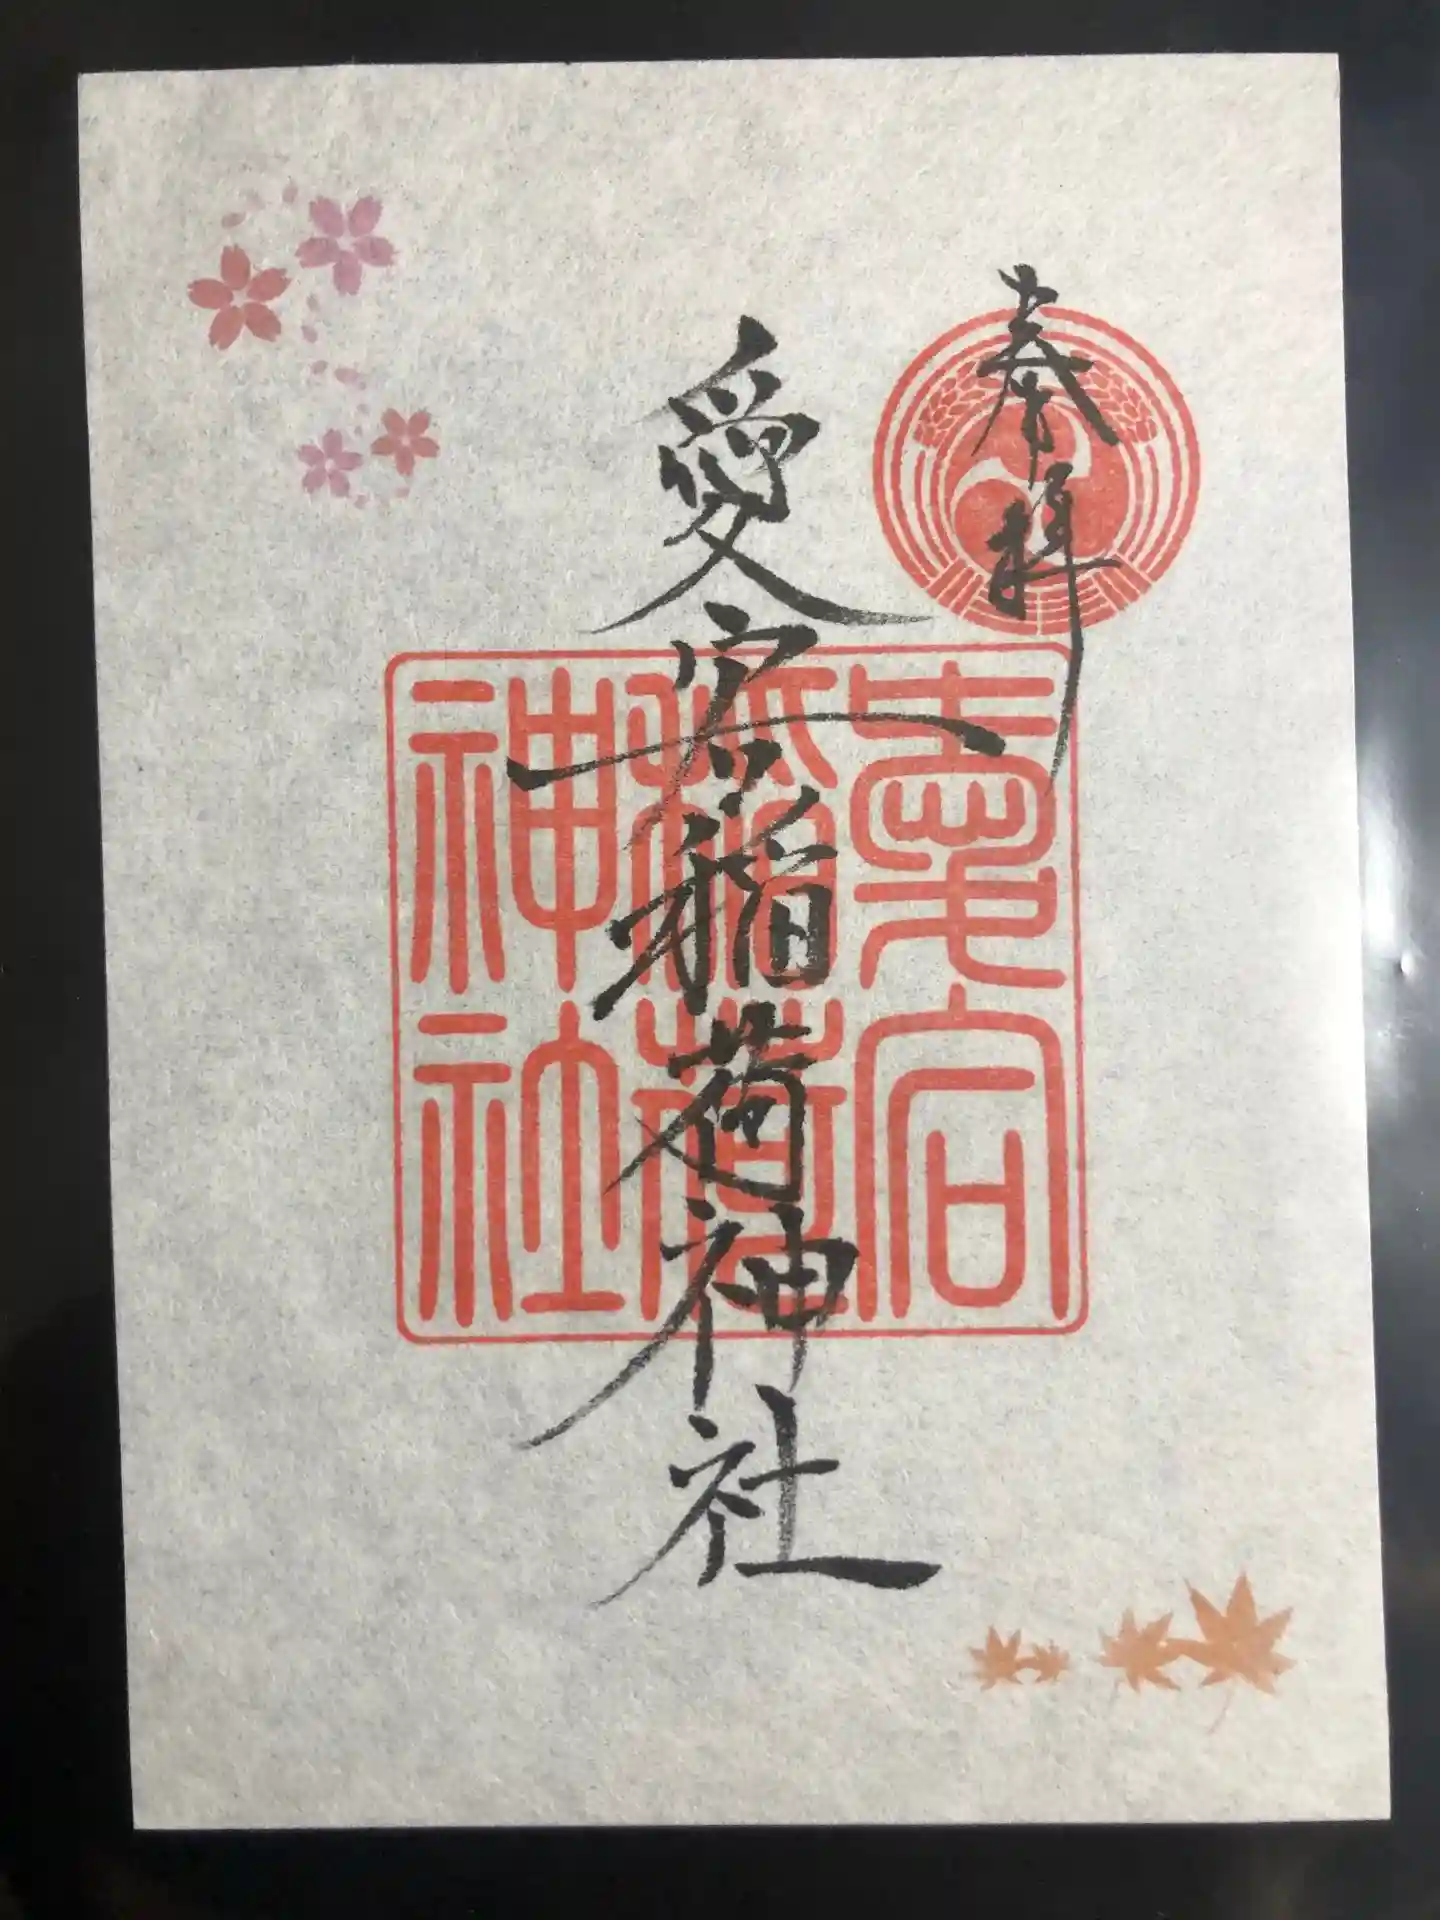 奉拝
愛宕稲荷神社
愛宕
稲荷
神社